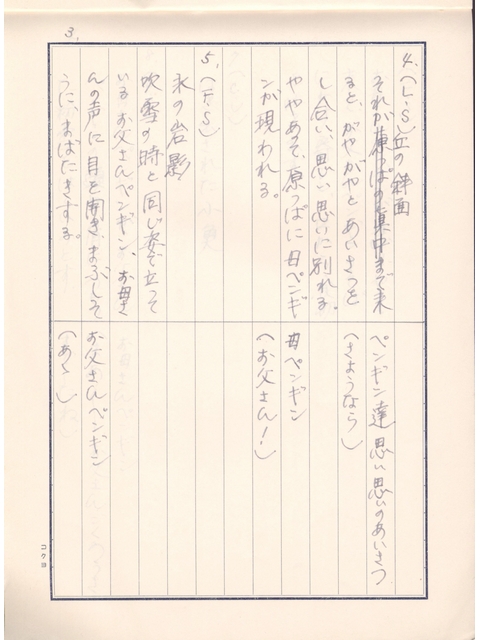 3.
4.(L・S)丘の斜面
それが原っぱの真中まで来
ると、がやがやとあいさつを
し合い、思い思いに別れる。
ややあて、原っぱに母ペンギ
ンが現われる。
5.(F.S)
氷の岩影
吹雪の時と同じ姿で立って
いるお父さんペンギン、お母さ
んの声に目を開き、まぶしそ
うに、まばたきする。
ペンギン達 思い思いのあいさつ
(さようなら)
母ペンギン
(お父さん!)
お父さんペンギン
(あゝ)
コクヨ